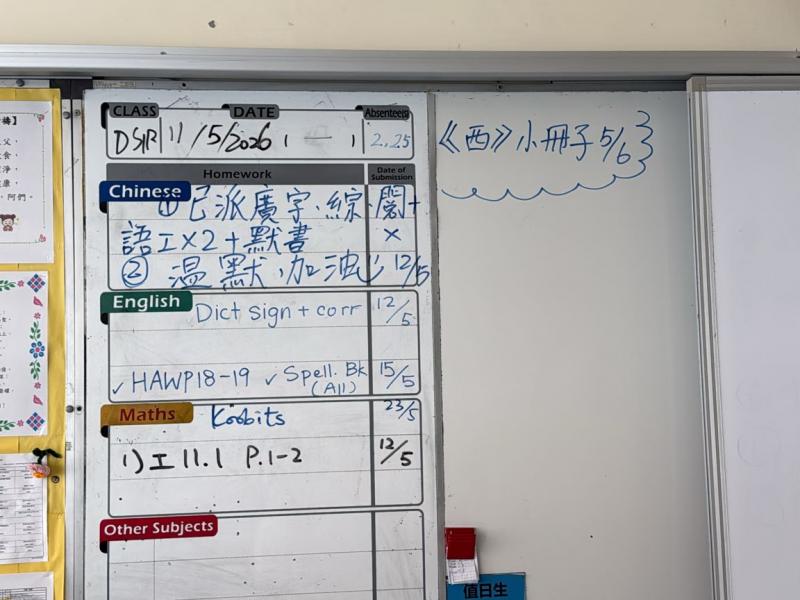 CLASS DATE Absentee(s)
11/5/2026 (一) 2.25
Homework Date of Submission
Chinese
① 已派廣字、綜、閱+
語工x2+默書 x
② 温默,加油! 12/5
English
Dict sign + corr 12/5
✓ HAWP18-19 ✓ Spell. Bk (All) 15/5
Maths
Koobits 23/5
1) 工 11.1 P.1-2 12/5
Other Subjects
《西》小冊子 5/6
值日生